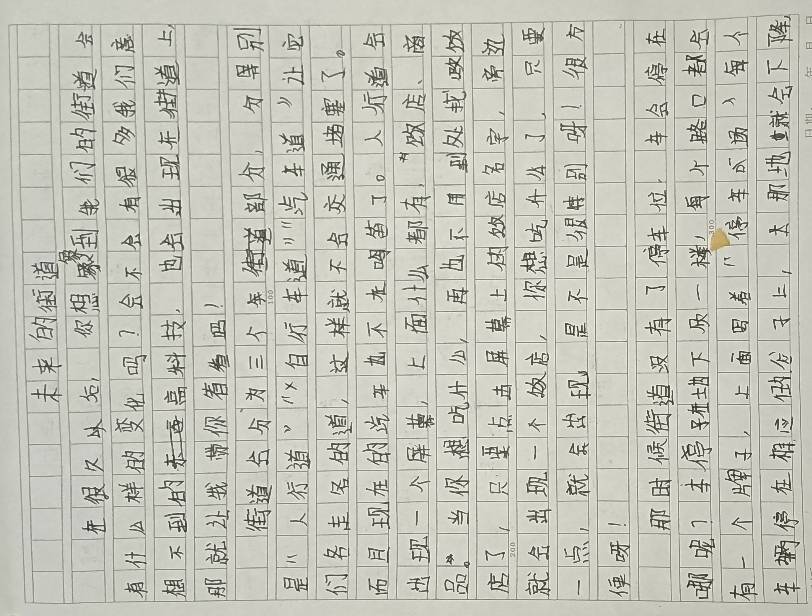 未来的街道
在很久以后，你想象到我们的街道会
有什么样的变化吗？会不会有很多我们意
想不到的高科技，也会出现在街道上，
那就让我带你看看吧！
街道会分为三个街道部分，分别
是“人行道”“自行车道”“汽车道”让它
们各走各的道，这样就不会交通堵塞了。
而且现在的汽车也不在鸣笛了。人行道会
出现一个屏幕，上面什么都有，“饭店、商
品”当你想吃什么，再也不用到处找饭
店了，只要点击屏幕上的饭店名字，旁边
就会出现一个饭店，你想吃什么了，只要
一点，就会出现，是不是很特别呀！很方
便呀！
那时候街道没有了停车位，车会停在
哪呢？车停在地下一楼，每个路口都会
有一个牌子，上面写着“停车广场”每个
车辆停在相应的位子上，那地就会下降，
100
200
300